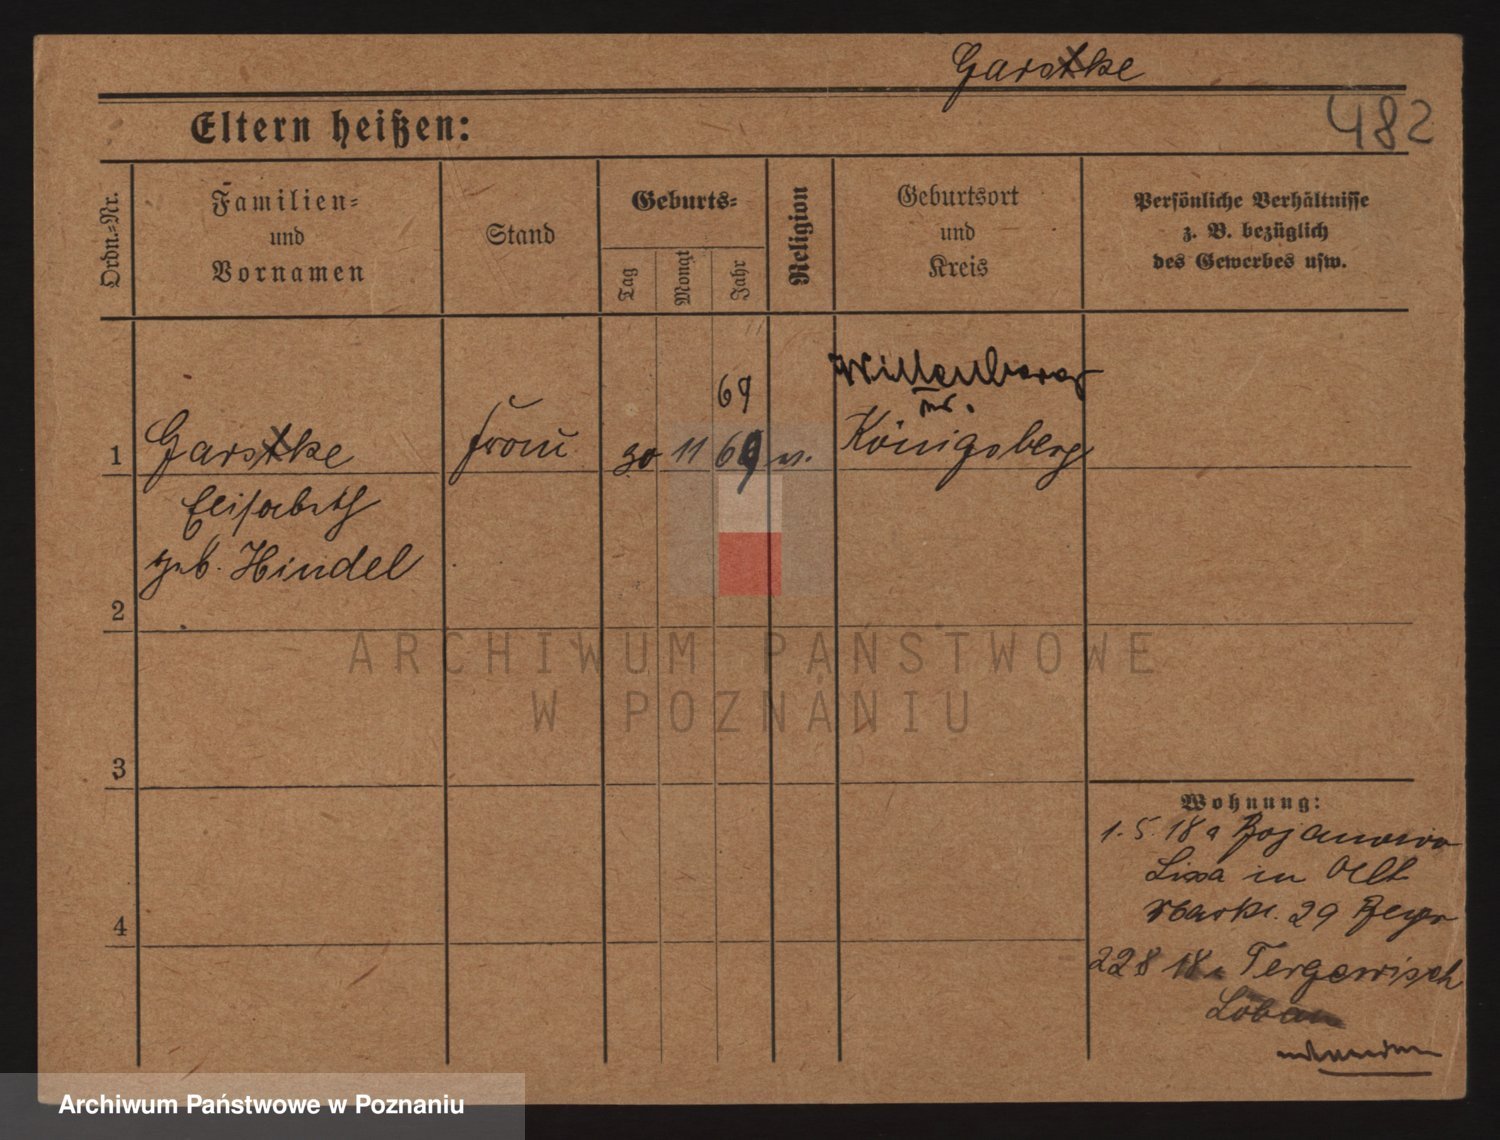 Garstke
482
Eltern heißen:
Ordn.-Nr.
Familien- und Vornamen
Stand
Geburts-
Tag
Monat
Jahr
Religion
Geburtsort und Kreis
Persönliche Verhältnisse
z. B. bezüglich
des Gewerbes usw.
69
1 Garstke Frau 30 11 69 Königsberg
Elisabeth
geb. Hindel
2
3
4
Wohnung:
1. 5. 18 a Bojanowo
Lissa in
Markt. 29 Beyer
22 8 18 Tergewisch
Löbau
ARCHIWUM PAŃSTWOWE
W POZNANIU
Archiwum Państwowe w Poznaniu